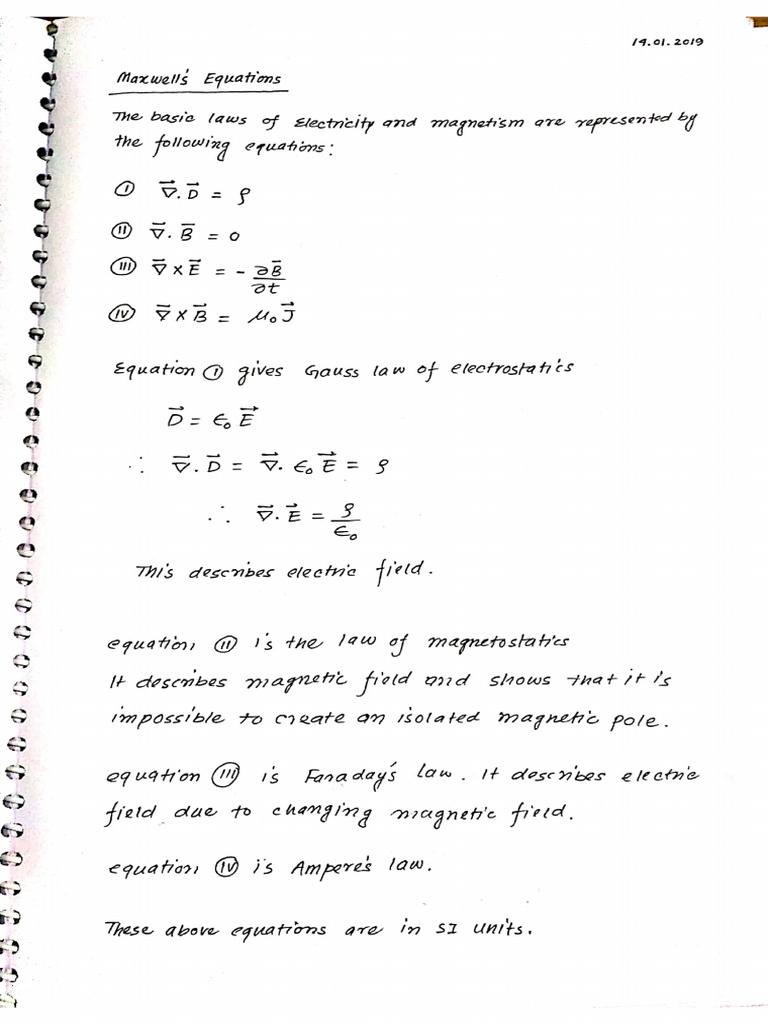 14.01.2019
Maxwell's Equations
The basic laws of Electricity and magnetism are represented by
the following equations:
(I) ∇⃗.D⃗ = ρ
(II) ∇⃗.B⃗ = 0
(III) ∇⃗×E⃗ = - ∂B⃗/∂t
(IV) ∇⃗×B⃗ = μ₀J⃗
Equation (I) gives Gauss law of electrostatics
D⃗ = ϵ₀E⃗
∴ ∇⃗.D⃗ = ∇⃗.ϵ₀E⃗ = ρ
∴ ∇⃗.E⃗ = ρ/ϵ₀
This describes electric field.
equation (II) is the law of magnetostatics
It describes magnetic field and shows that it is
impossible to create an isolated magnetic pole.
equation (III) is Faraday's law. It describes electric
field due to changing magnetic field.
equation (IV) is Ampere's law.
These above equations are in SI units.